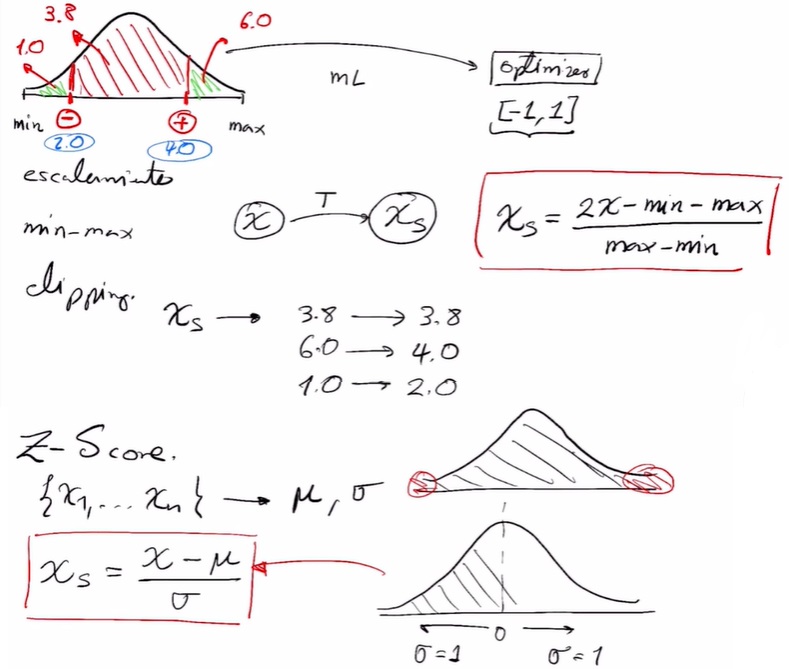 3.8
6.0
1.0
mL
optimizer
[-1,1]
min - + max
2.0 4.0
escalamiento
min-max
x T xₛ
xₛ = (2x - min - max) / (max - min)
clipping.
xₛ → 3.8 → 3.8
6.0 → 4.0
1.0 → 2.0
Z-Score.
{x₁, ... xₙ} → μ, σ
xₛ = (x - μ) / σ
0
σ=1 σ=1